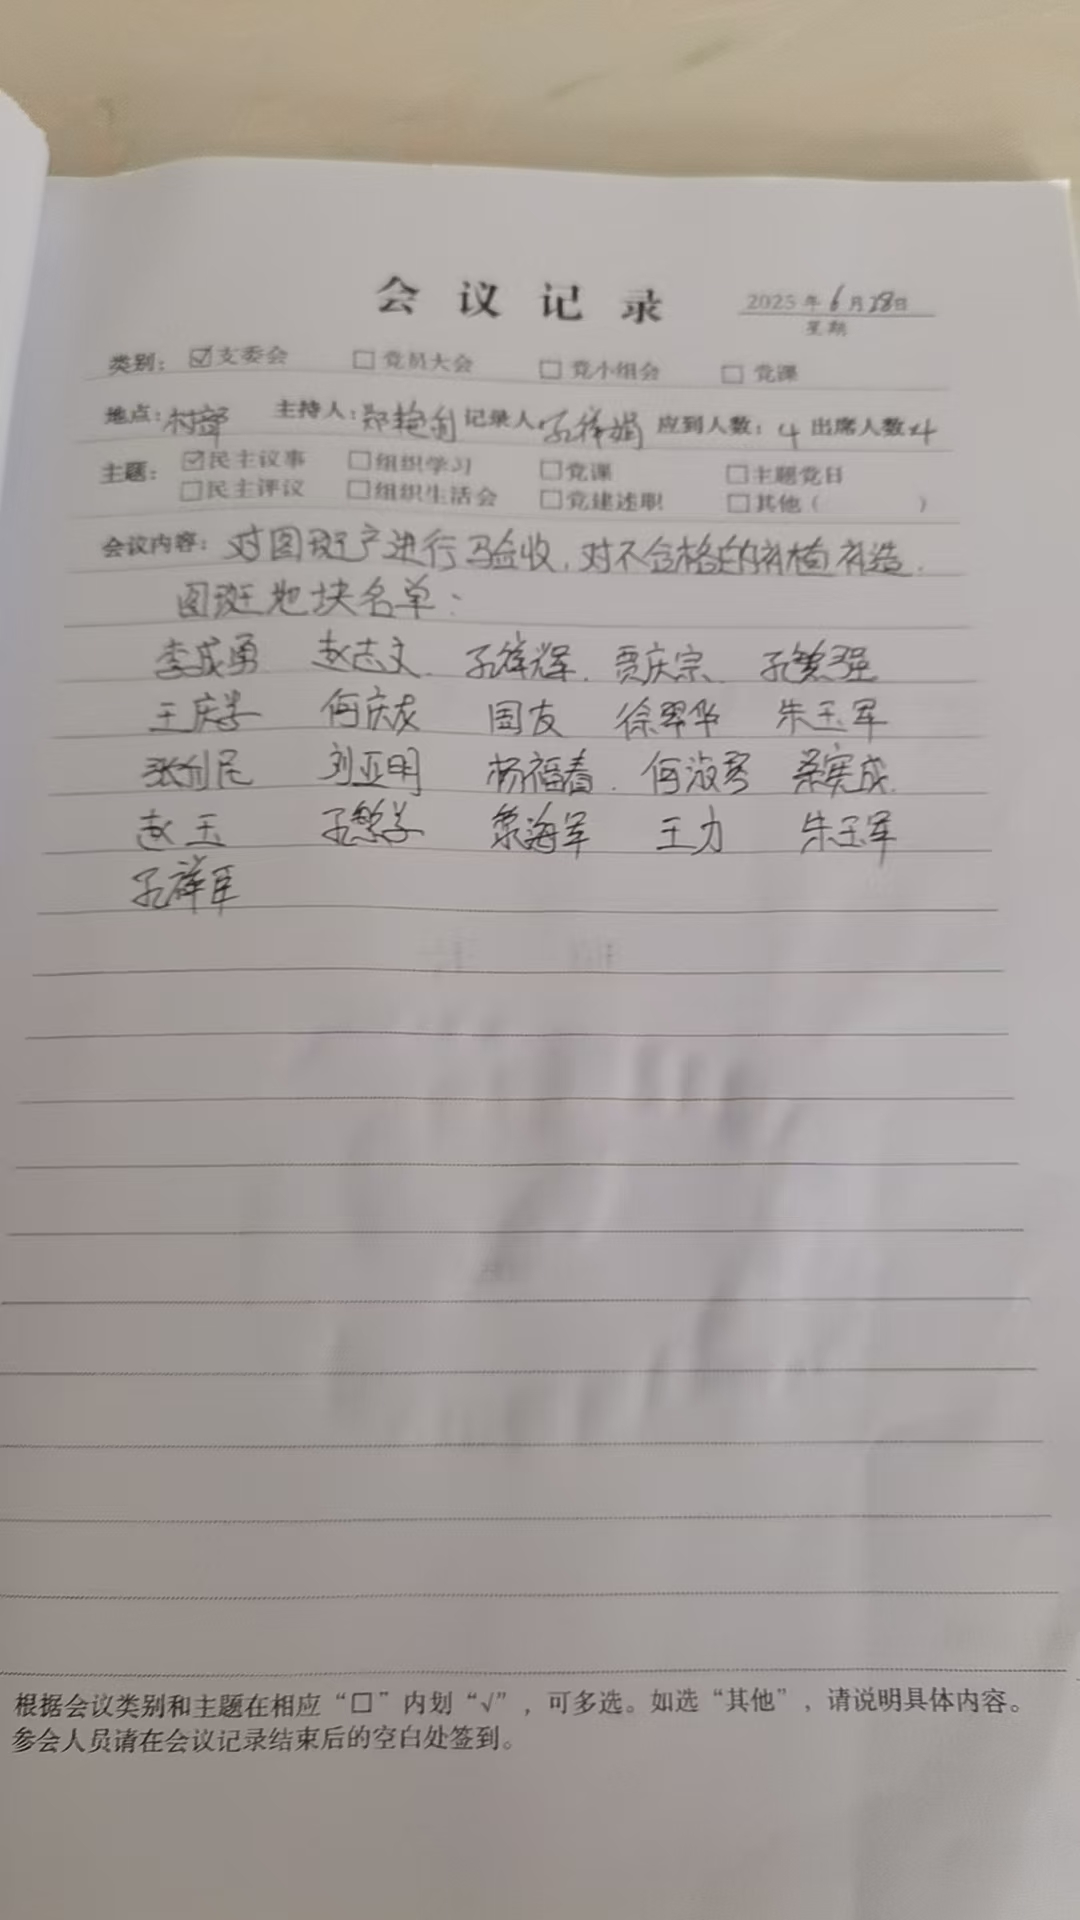 会议记录
2025年6月28日
星期
类别: ☑支委会 □党员大会 □党小组会 □党课
地点:村部 主持人:郑艳利 记录人 孔祥娟 应到人数:4 出席人数:4
主题: ☑民主议事 □组织学习 □党课 □主题党日
□民主评议 □组织生活会 □党建述职 □其他( )
会议内容:对图斑户进行验收,对不合格的补植补造.
图斑地块名单:
李成勇 赵志文 孔祥辉. 贾庆宗 孔繁强
王庆学 何庆友 国友 徐翠华 朱玉军
张利民 刘亚明 杨福春. 何淑琴 宪成.
赵玉 孔繁学 海军 王力 朱玉军
孔祥军
根据会议类别和主题在相应“□”内划“√”,可多选。如选“其他”,请说明具体内容。
参会人员请在会议记录结束后的空白处签到。